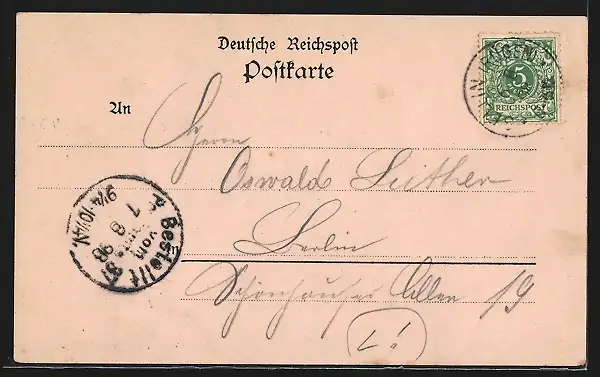 Deutsche Reichspost
Postkarte
An
Herrn
Oswald Leither
Berlin
Schönhauser Allee 19
L!
5
REICHSPOST
Bestellt
vom
Postamte
1 8 98
9¼-10½V.